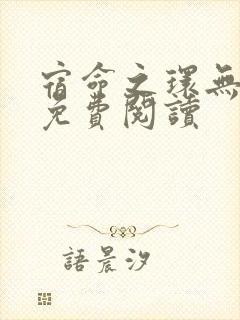 宿命之環無
免費閱讀
語晨汐